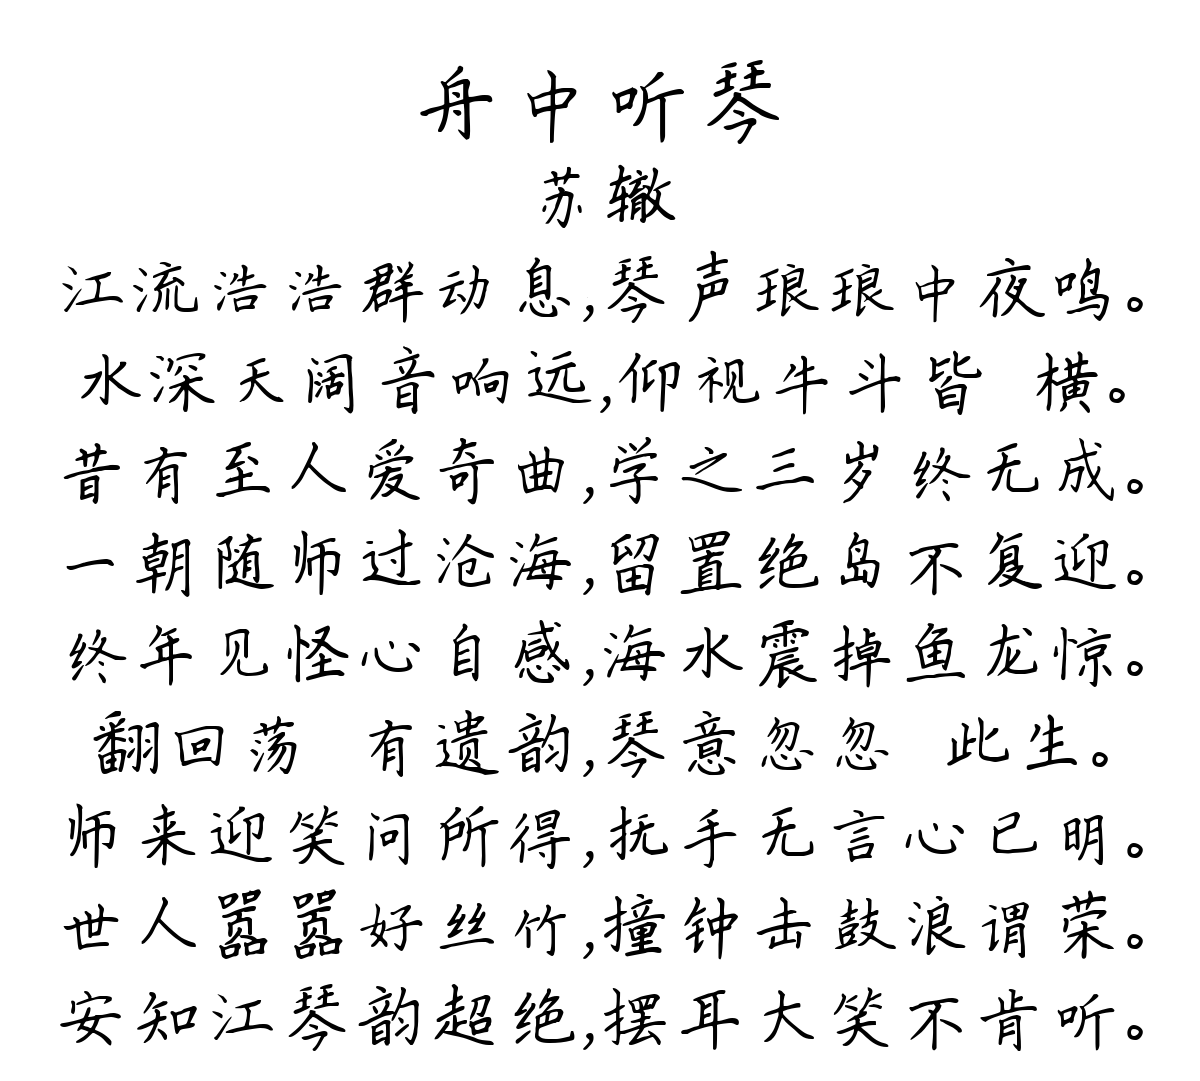 舟中听琴
苏辙
江流浩浩群动息,琴声琅琅中夜鸣。
水深天阔音响远,仰视牛斗皆 横。
昔有至人爱奇曲,学之三岁终无成。
一朝随师过沧海,留置绝岛不复迎。
终年见怪心自感,海水震掉鱼龙惊。
翻回荡 有遗韵,琴意忽忽 此生。
师来迎笑问所得,抚手无言心已明。
世人嚣嚣好丝竹,撞钟击鼓浪谓荣。
安知江琴韵超绝,摆耳大笑不肯听。